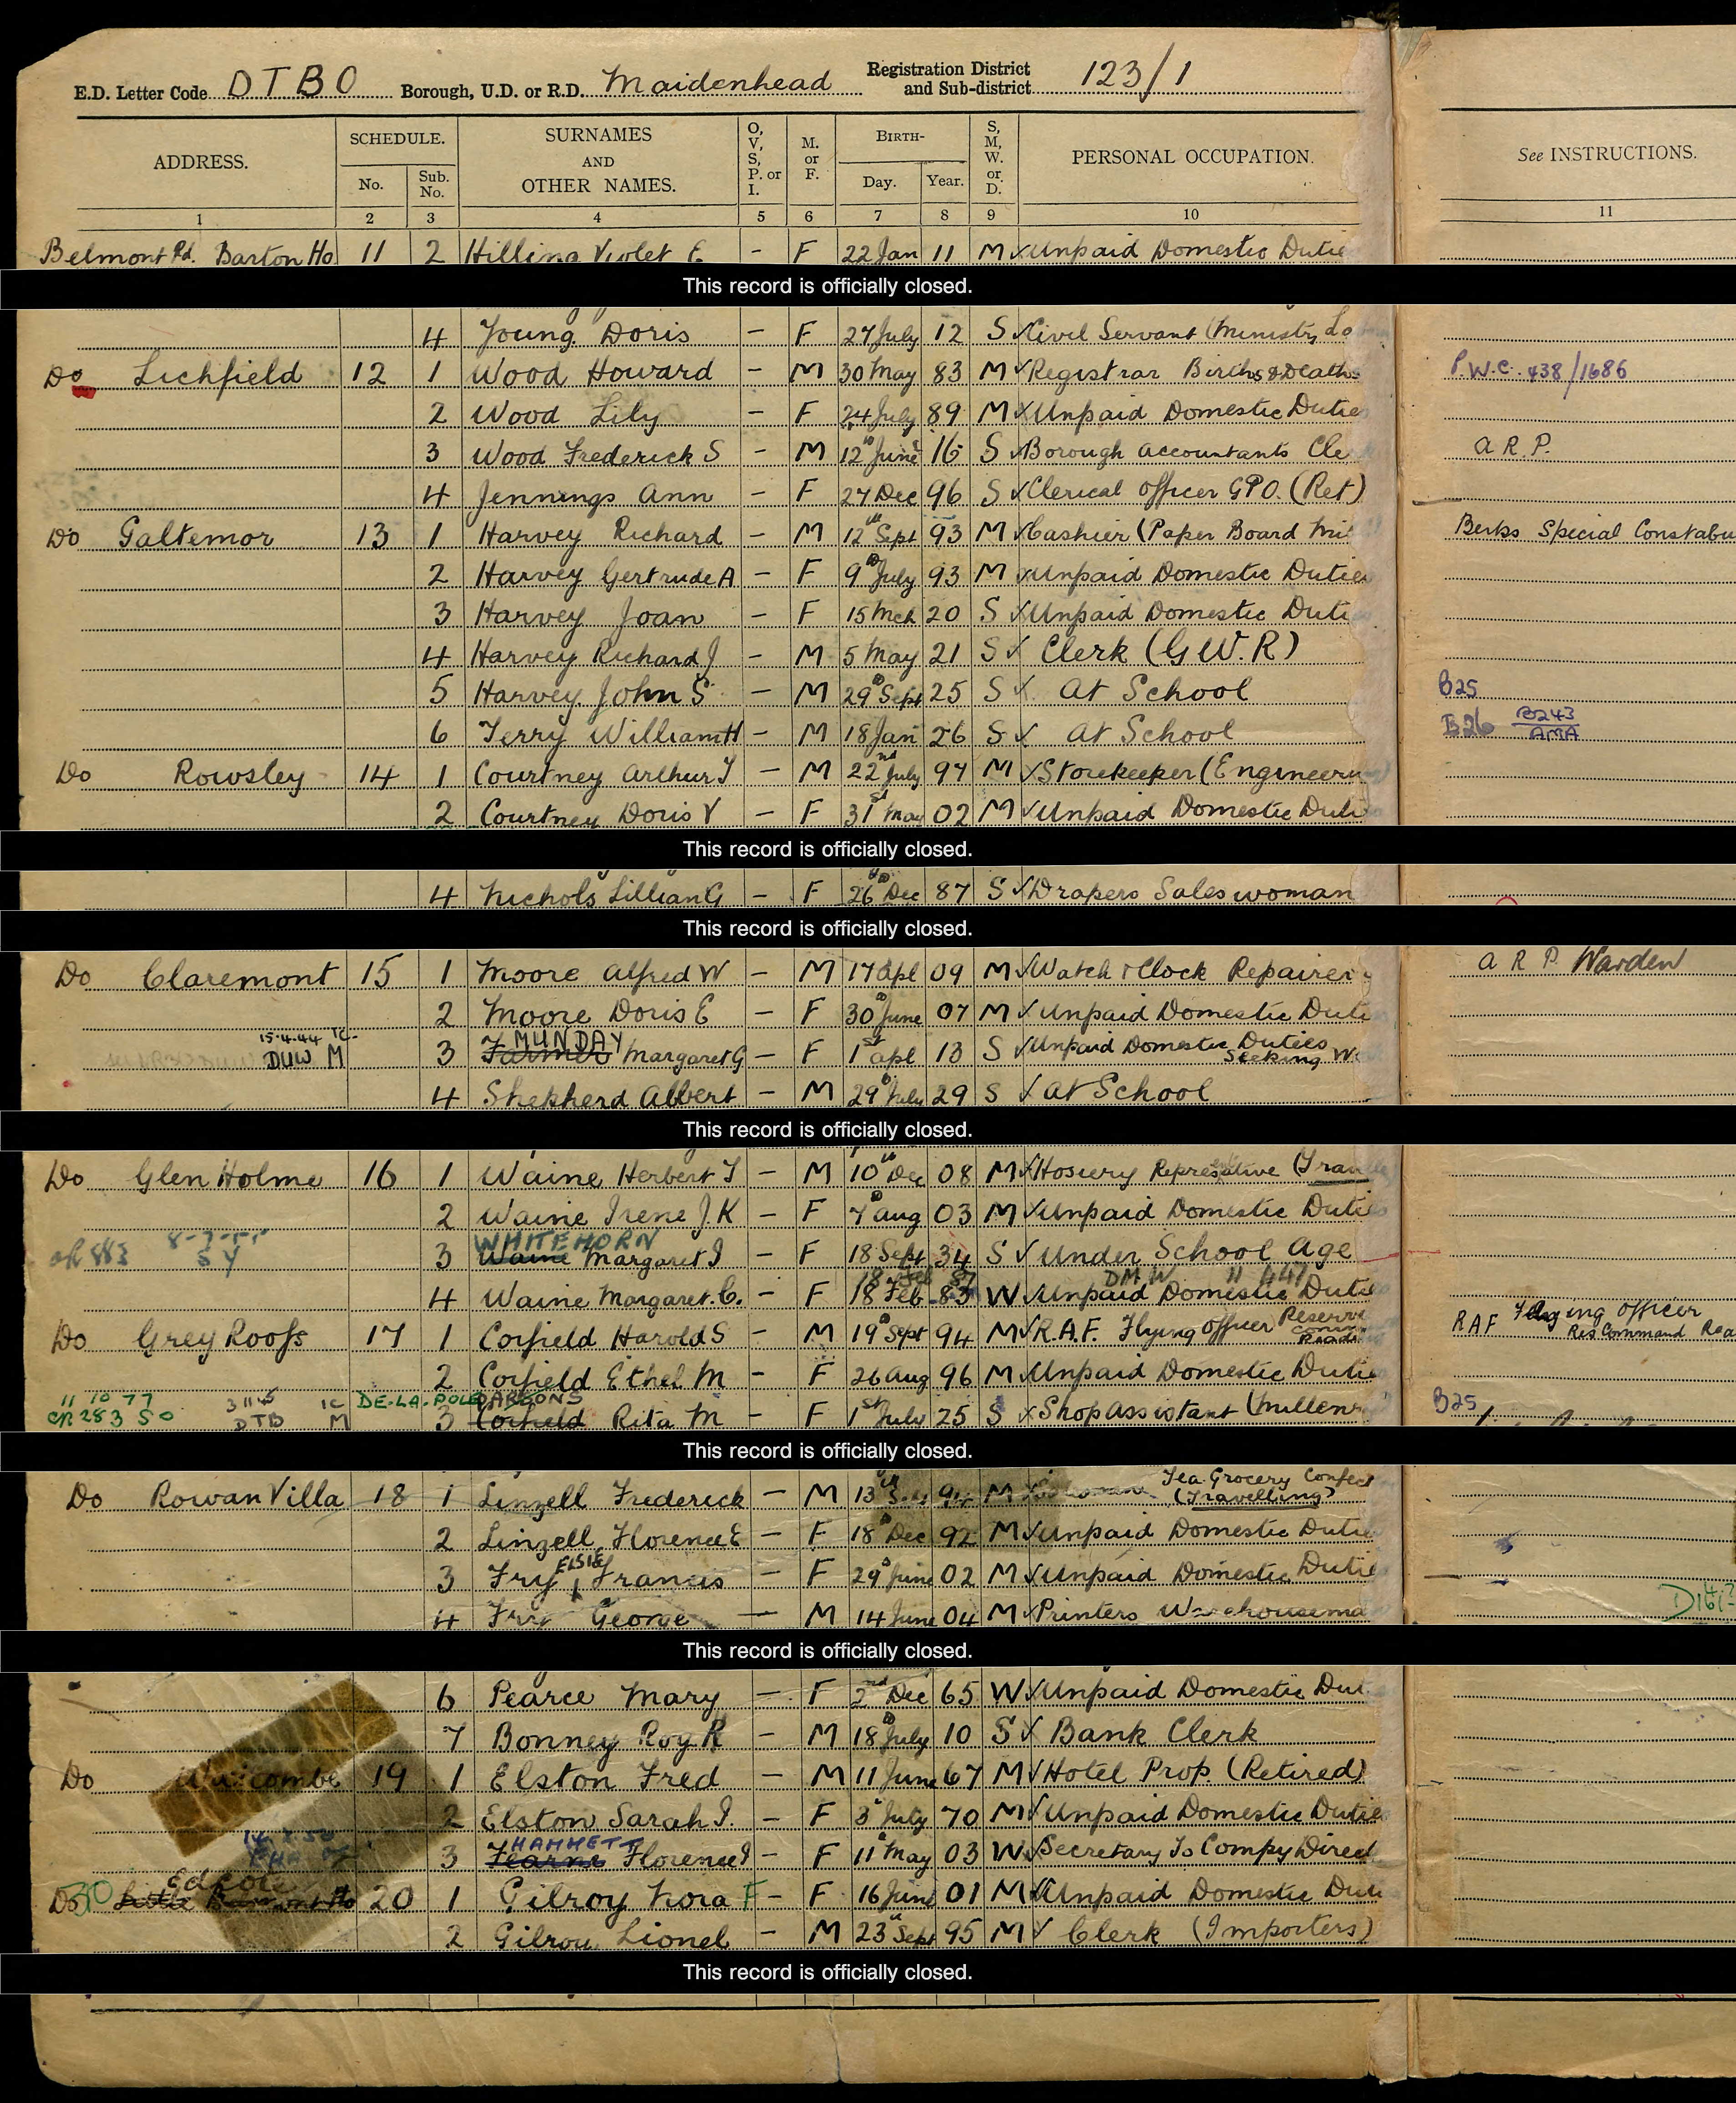 E.D. Letter Code DTBO Borough, U.D. or R.D. Maidenhead Registration District and Sub-district 123/1
ADDRESS. SCHEDULE. No. Sub. No. SURNAMES AND OTHER NAMES. O, V, S, P. or I. M. or F. BIRTH- Day. Year. S, M, W. or D. PERSONAL OCCUPATION. See INSTRUCTIONS.
1 2 3 4 5 6 7 8 9 10 11
Belmont Rd. Barton Ho 11 2 Hilling Violet E. - F 22 Jan 11 M Unpaid Domestic Dutie
This record is officially closed.
4 Young Doris - F 27 July 12 S Civil Servant (Ministry La
Do Lichfield 12 1 Wood Howard - M 30 May 83 M Registrar Births & Deaths P.W.C. 438/1686
2 Wood Lily - F 24 July 89 M Unpaid Domestic Dutie
3 Wood Frederick S - M 12th June 16 S Borough Accountants Cle A R P.
4 Jennings Ann - F 27 Dec 96 S Clerical Officer GPO. (Ret)
Do Galtemor 13 1 Harvey Richard - M 12th Sept 93 M Cashier (Paper Board Mil Berks Special Constabu
2 Harvey Gertrude A - F 9th July 93 M Unpaid Domestic Duties
3 Harvey Joan - F 15 Mch 20 S Unpaid Domestic Duti
4 Harvey Richard J - M 5 May 21 S Clerk (G.W.R)
5 Harvey John S - M 29th Sept 25 S At School B25
6 Terry William H - M 18 Jan 26 S At School B26 B243 AMA
Do Rowsley 14 1 Courtney Arthur T - M 22nd July 97 M Storekeeper (Engineerin
2 Courtney Doris V - F 31st May 02 M Unpaid Domestic Duti
This record is officially closed.
4 Nichols Lillian G - F 26th Dec 87 S Drapers Saleswoman
This record is officially closed.
Do Claremont 15 1 Moore Alfred W - M 17 Apl 09 M Watch & Clock Repairer A R P Warden
2 Moore Doris E - F 30th June 07 M Unpaid Domestic Duti
15.4.44 TC- DUW M 3 Farmer MUNDAY Margaret G - F 1st Apl 13 S Unpaid Domestic Duties Seeking W
4 Shepherd Albert - M 29th July 29 S At School
This record is officially closed.
Do Glen Holme 16 1 Waine Herbert T - M 10th Dec 08 M Hosiery Representative (Trav
2 Waine Irene J. K - F 7th Aug 03 M Unpaid Domestic Duties
883 8-7-55 SY 3 Waine WHITEHORN Margaret I - F 18 Sept 34 S Under School Age
4 Waine Margaret. C. - F 18 Feb 83 W Unpaid Domestic Duti DMW
Do Grey Roofs 17 1 Corfield Harold S - M 19th Sept 94 M R.A.F. Flying Officer Reserve RAF Flying Officer Res Command Rea
2 Corfield Ethel M - F 26 Aug 96 M Unpaid Domestic Duti
11 10 77 CR 283 SO DTB M DE-LA-POLE PARSONS 3 Corfield Rita M - F 1st July 25 S Shop Assistant (Millenr B25
This record is officially closed.
Do Rowan Villa 18 1 Linzell Frederick - M 13th 94 M Tea Grocery Confect (Travelling)
2 Linzell Florence E - F 18th Dec 92 M Unpaid Domestic Dutie
3 Fry ELSIE Francis - F 29th June 02 M Unpaid Domestic Dutie
4 Fry George - M 14 June 04 M Printers Warehousema
This record is officially closed.
6 Pearce Mary - F 2nd Dec 65 W Unpaid Domestic Dut
7 Bonney Roy R - M 18th July 10 S Bank Clerk
Do 19 1 Elston Fred - M 11 June 67 M Hotel Prop. (Retired)
2 Elston Sarah J. - F 3 July 70 M Unpaid Domestic Dutie
3 HAMMETT Florence I - F 11th May 03 W Secretary To Compy Direct
Do Edcote 20 1 Gilroy Nora F - F 16 June 01 M Unpaid Domestic Duti
2 Gilroy Lionel - M 23rd Sept 95 M Clerk (Importers)
This record is officially closed.